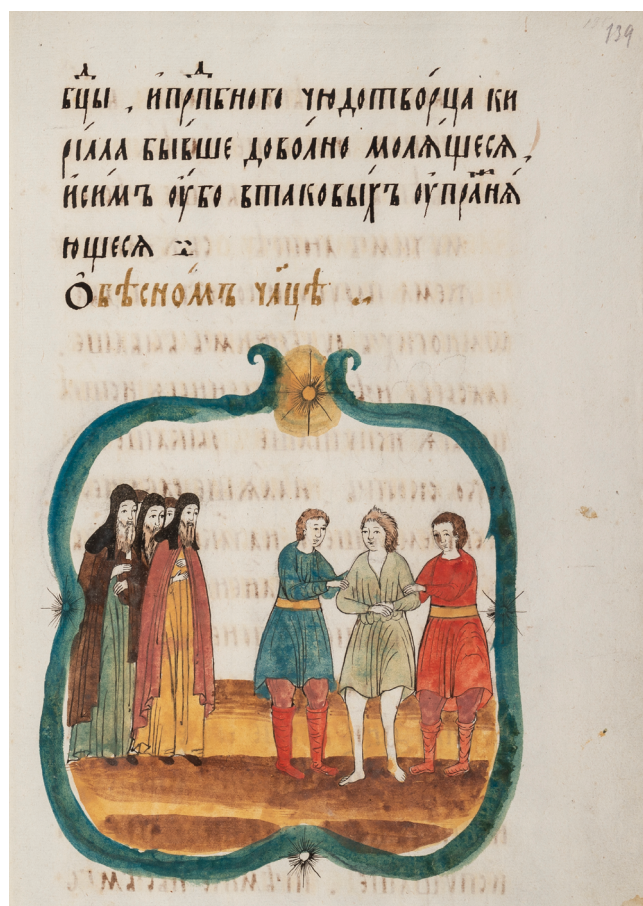 139
бцⷣы , и҆прпⷣбнаго чюдотво́рца ки
рі́лла бы́вше дово́лно моля́щеся ,
и҆си́мъ ᲂу҆́бо втаковы́хъ ᲂу҆пражнѧ́
ющеся
Ѻ҆бѣсно́мъ чл҃цѣ